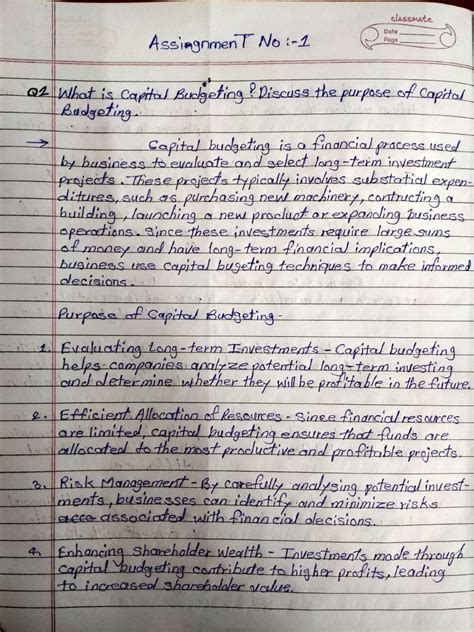 classmate
Date
Page
Assignment No :- 1
Q1 What is Capital Budgeting? Discuss the purpose of Capital
Budgeting.
→ Capital budgeting is a financial process used
by business to evaluate and select long-term investment
projects. These projects typically involves substatial expen-
ditures, such as purchasing new machinery, contructing a
building, launching a new product or expanding business
operations. Since these investments require large sums
of money and have long-term financial implications,
business use capital bugeting techniques to make informed
decisions.
Purpose of Capital Budgeting-
1. Evaluating Long-term Investments - Capital budgeting
helps companies analyze potential long-term investing
and determine whether they will be profitable in the future.
2. Efficient Allocation of Resources - Since financial resources
are limited, capital budgeting ensures that funds are
allocated to the most productive and profitable projects.
3. Risk Management - By carefully analysing potential invest-
ments, businesses can identify and minimize risks
associated with financial decisions.
4. Enhancing Shareholder Wealth - Investments made through
capital budgeting contribute to higher profits, leading
to increased shareholder value.